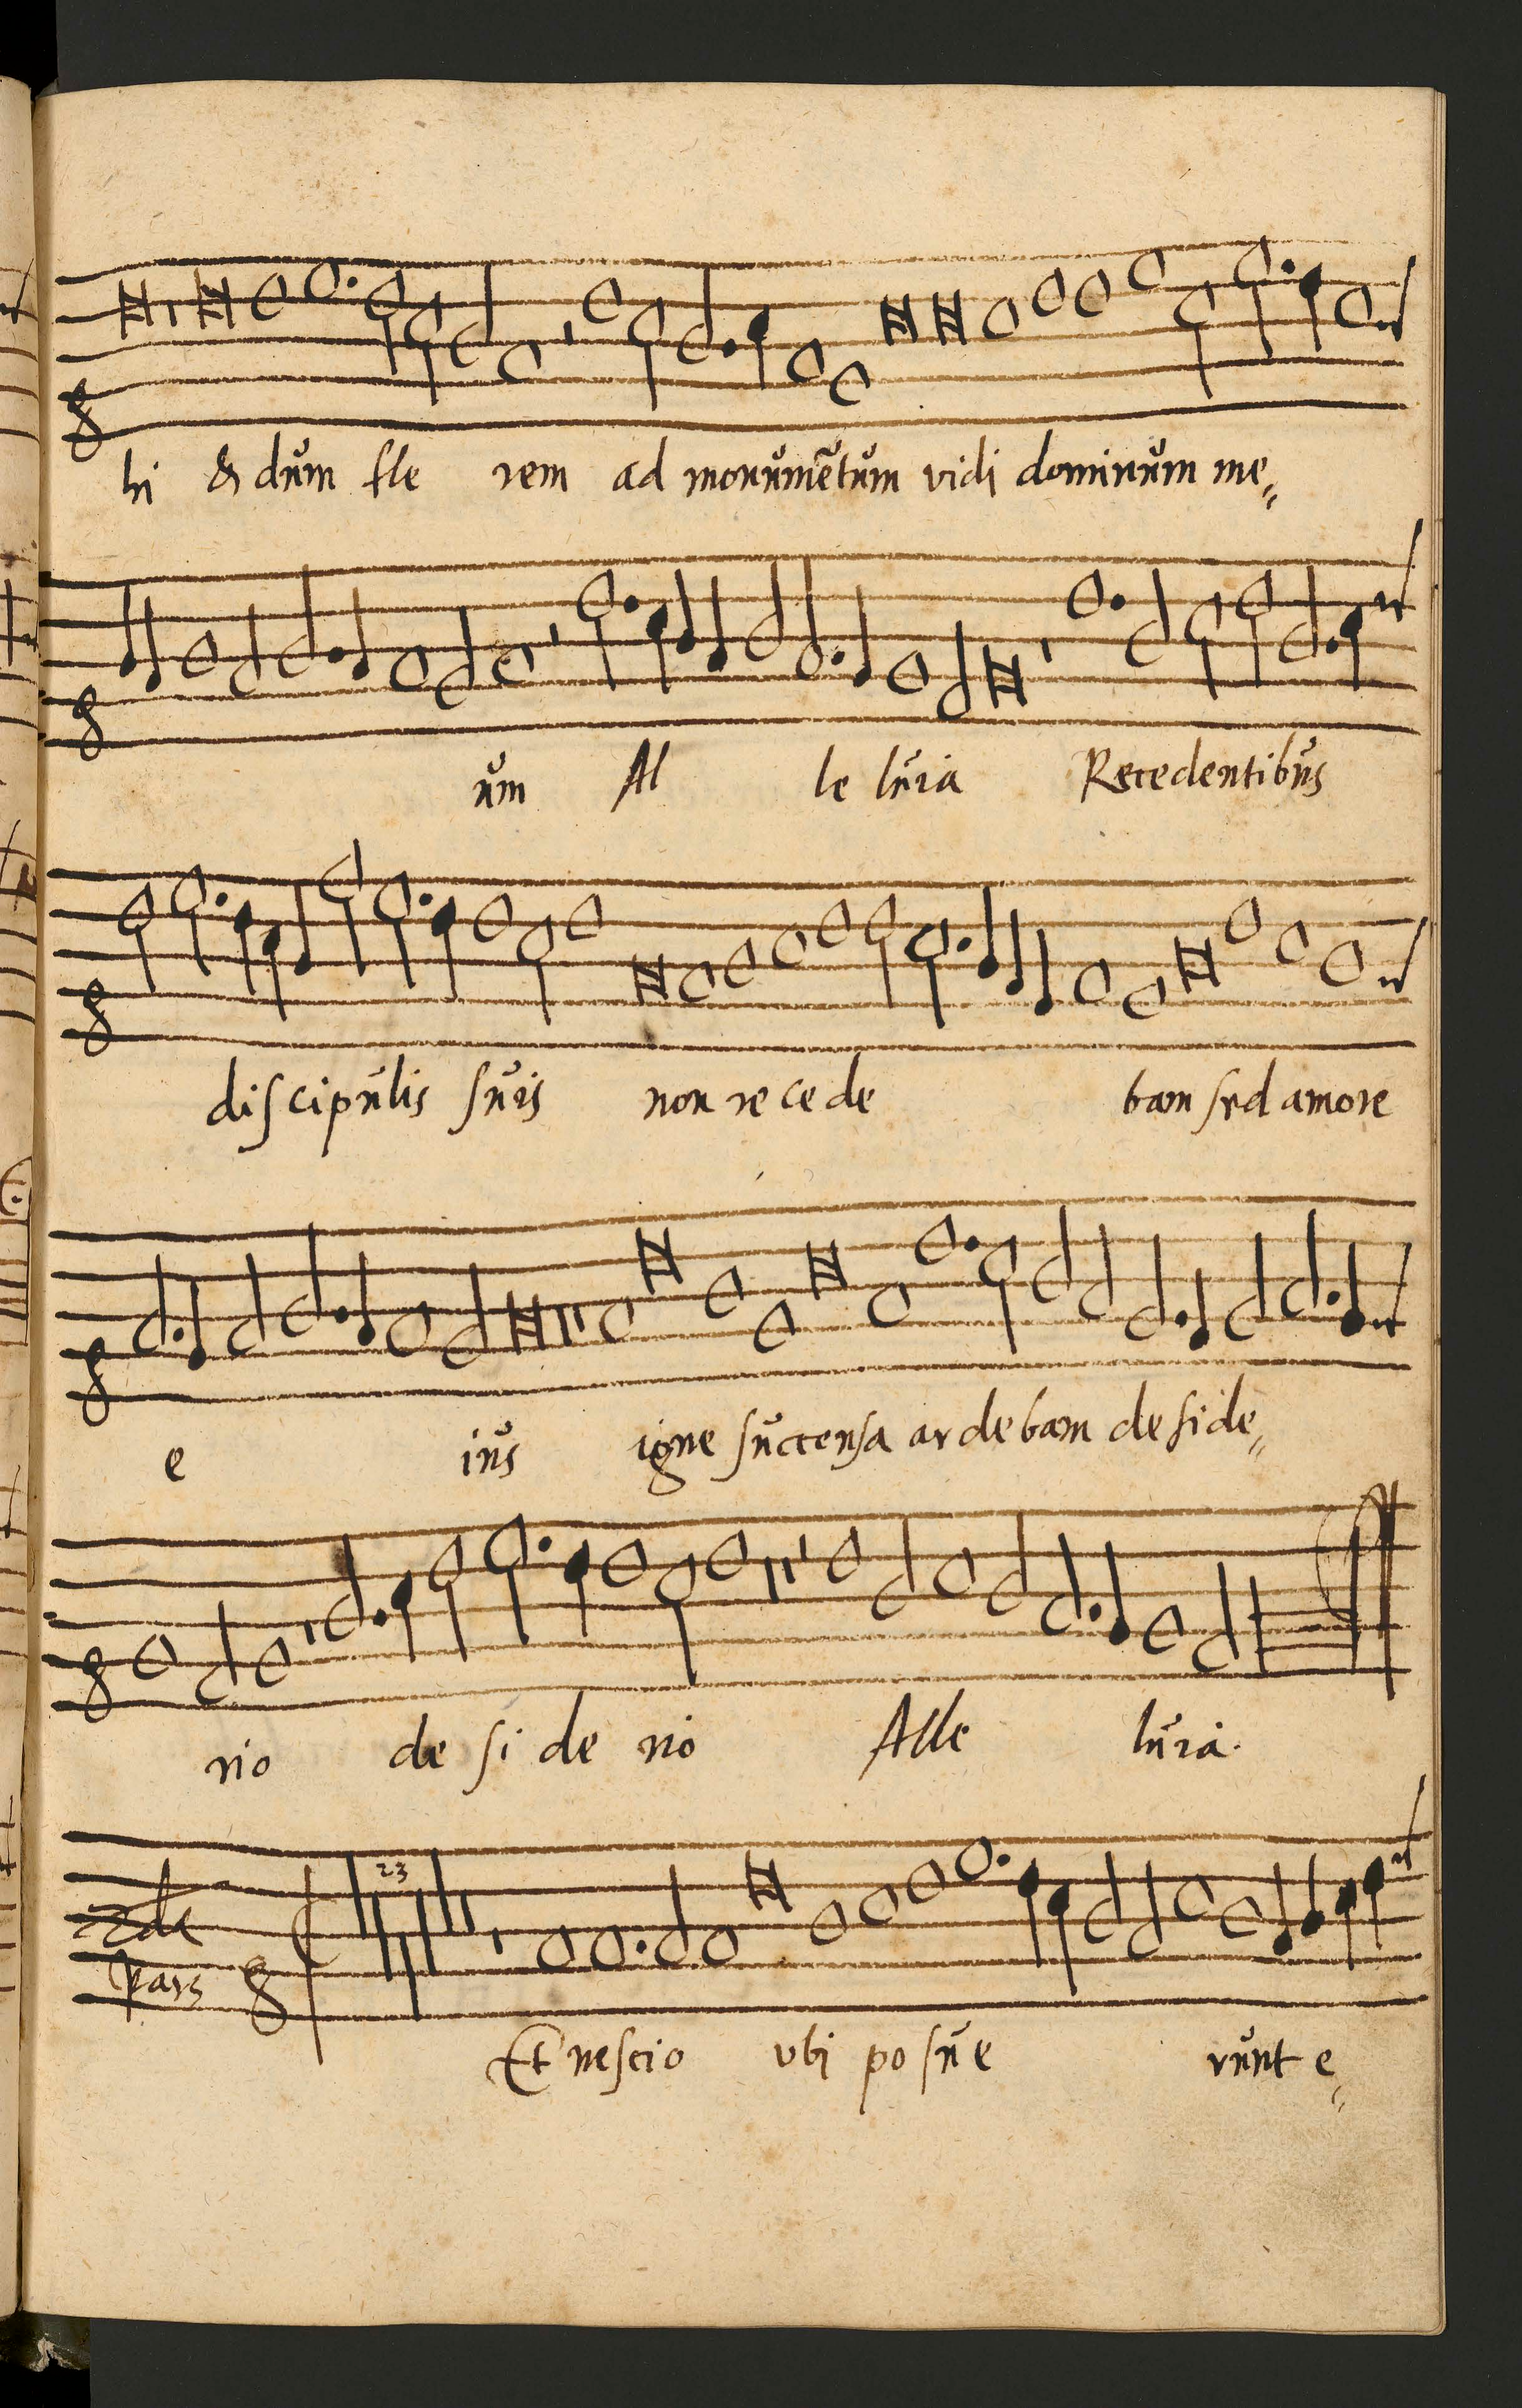 hi & dum fle rem ad monumētum vidi dominum me„
um Al le luia Recedentibus
discipulis suis non re ce de bam sed amore
e ius igne succensa ardebam deside„
rio de si de rio Alle luia.
2da 23
Pars
Et nescio vbi po su e runt e„